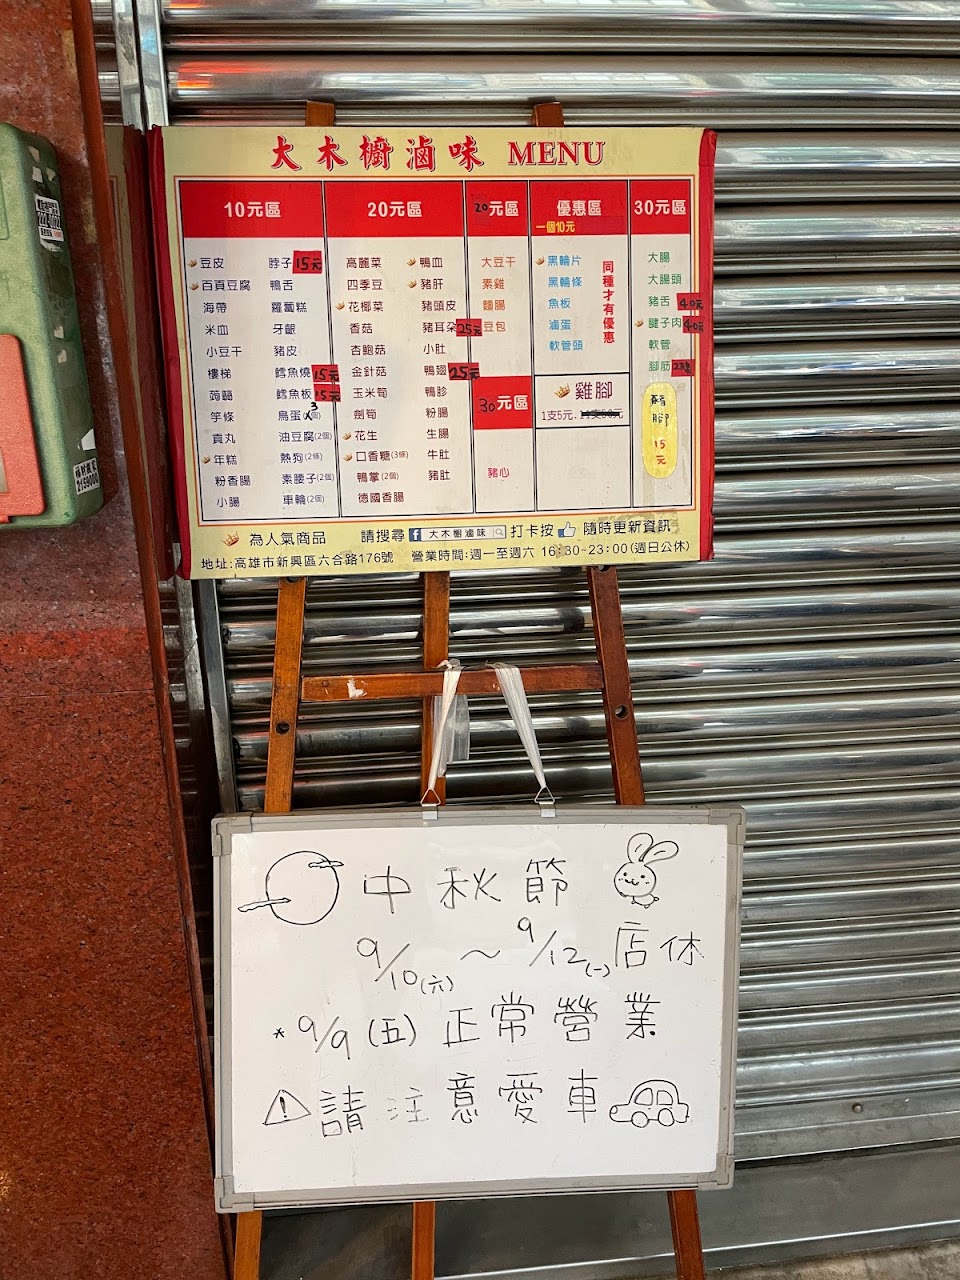 大木櫥滷味 MENU
10元區
豆皮 脖子 15元
百頁豆腐 鴨舌
海帶 蘿蔔糕
米血 牙齦
小豆干 豬皮
樓梯 鱈魚燒 15元
蒟蒻 鱈魚板 15元
竽條 鳥蛋 3個)
貢丸 油豆腐(2個)
年糕 熱狗(2條)
粉香腸 素腰子(2個)
小腸 車輪(2個)
20元區
高麗菜 鴨血
四季豆 豬肝
花椰菜 豬頭皮
香菇 豬耳朵 25元
杏鮑菇 小肚
金針菇 鴨翅 25元
玉米筍 鴨胗
劍筍 粉腸
花生 生腸
口香糖(3條) 牛肚
鴨掌(2個) 豬肚
德國香腸
20元區
大豆干
素雞
麵腸
豆包
30元區
豬心
優惠區
一個10元
黑輪片
黑輪條
魚板
滷蛋
軟管頭
同種才有優惠
雞腳
1支5元.
30元區
大腸
大腸頭
豬舌 40元
腱子肉 40元
軟管
腳筋
豬腳15元
為人氣商品 請搜尋 f 大木櫥滷味 打卡按 隨時更新資訊
地址:高雄市新興區六合路176號 營業時間:週一至週六 16:30~23:00(週日公休)
2159000
中秋節
9/10(六)~9/12(一)店休
*9/9(五)正常營業
請注意愛車